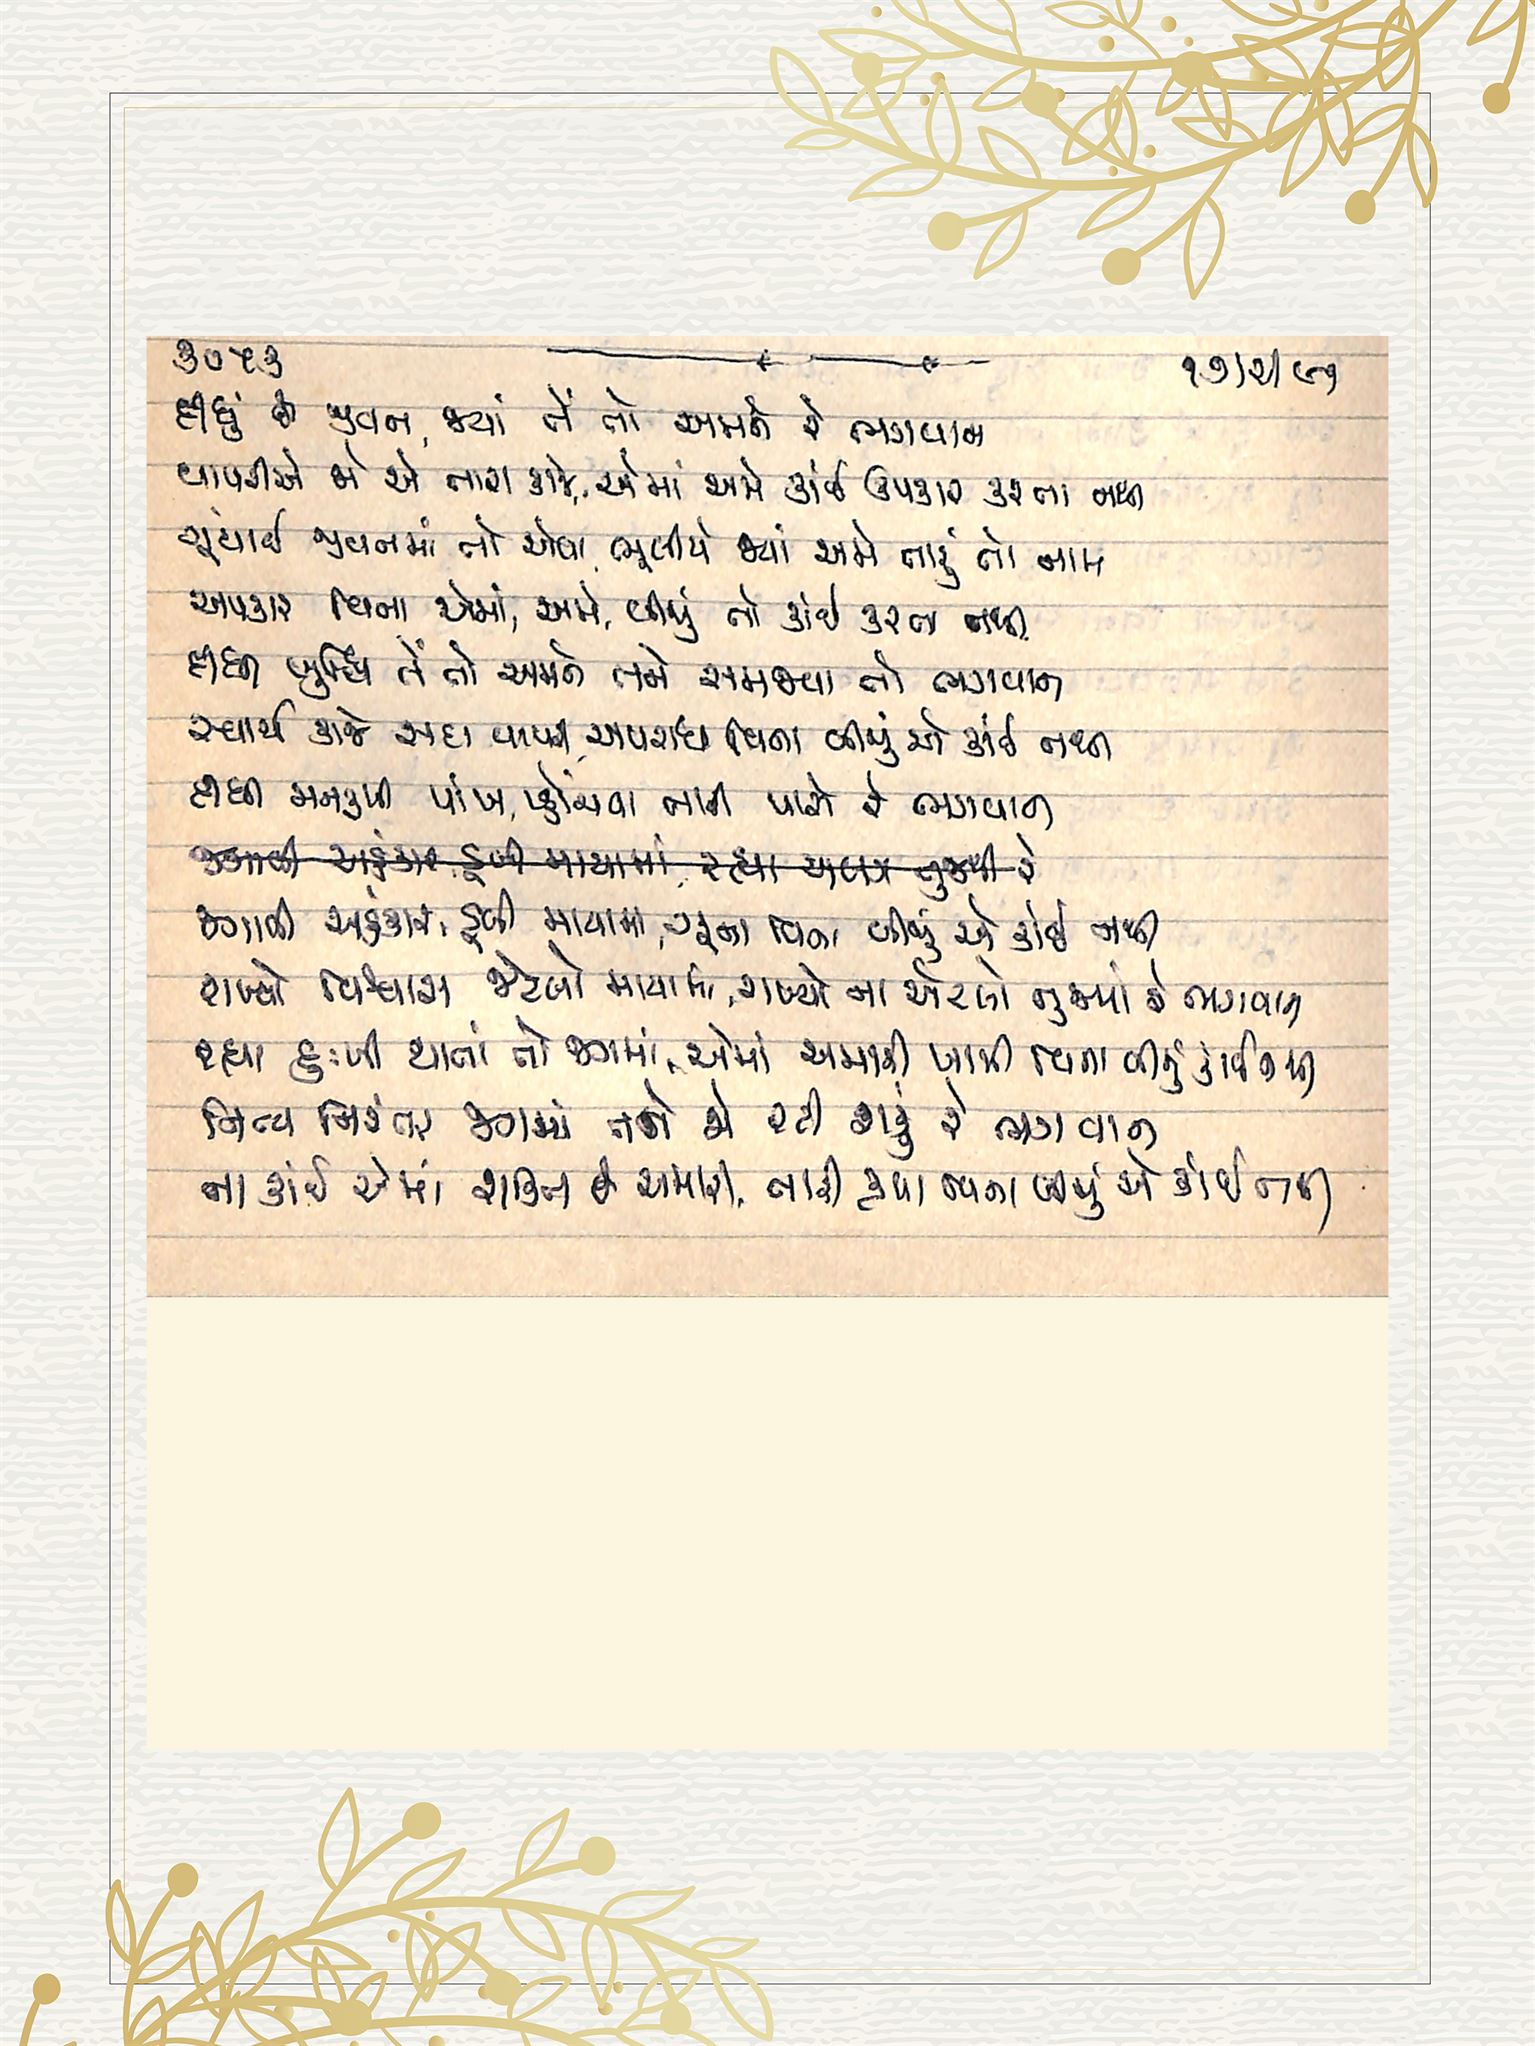 ૩૦૫૩ ૧૭/૨/૯૧
દીધું છે જીવન, જ્યાં તેં તો અમને રે ભગવાન
વાપરીએ જો એ તારા કાજે, એમાં અમે કાંઈ ઉપકાર કરતા નથી
ગૂંથાઈ જીવનમાં તો એવા, ભૂલીયે જ્યાં અમે તારું તો નામ
અપકાર વિના એમાં, અમે, બીજું તો કાંઈ કરતા નથી
દીધી બુદ્ધિ તેં તો અમને તમે સમજવા તો ભગવાન
સ્વાર્થ કાજે સદા વાપરી, અપરાધ વિના બીજું એ કાંઈ નથી
દીધી મનરૂપી પાંખ, પ્હોંચવા તારી પાસે રે ભગવાન
જગાવી અહંકાર, ડૂબી માયામાં, રહ્યા અલગ તુજથી રે
જગાવી અહંકાર, ડૂબી માયામાં, ગુના વિના બીજું એ કાંઈ નથી
રાખ્યો વિશ્વાસ જેટલો માયામાં, રાખ્યો ના એટલો તુજમાં રે ભગવાન
રહ્યા દુઃખી થાતાં તો જગમાં, એમાં અમારી ખામી વિના બીજું કાંઈ નથી
નિત્ય નિરંતર જગમાં તને જો રટી શકું રે ભગવાન
ના કાંઈ એમાં શક્તિ છે અમારી, તારી કૃપા વિના બીજું એ કાંઈ નથી